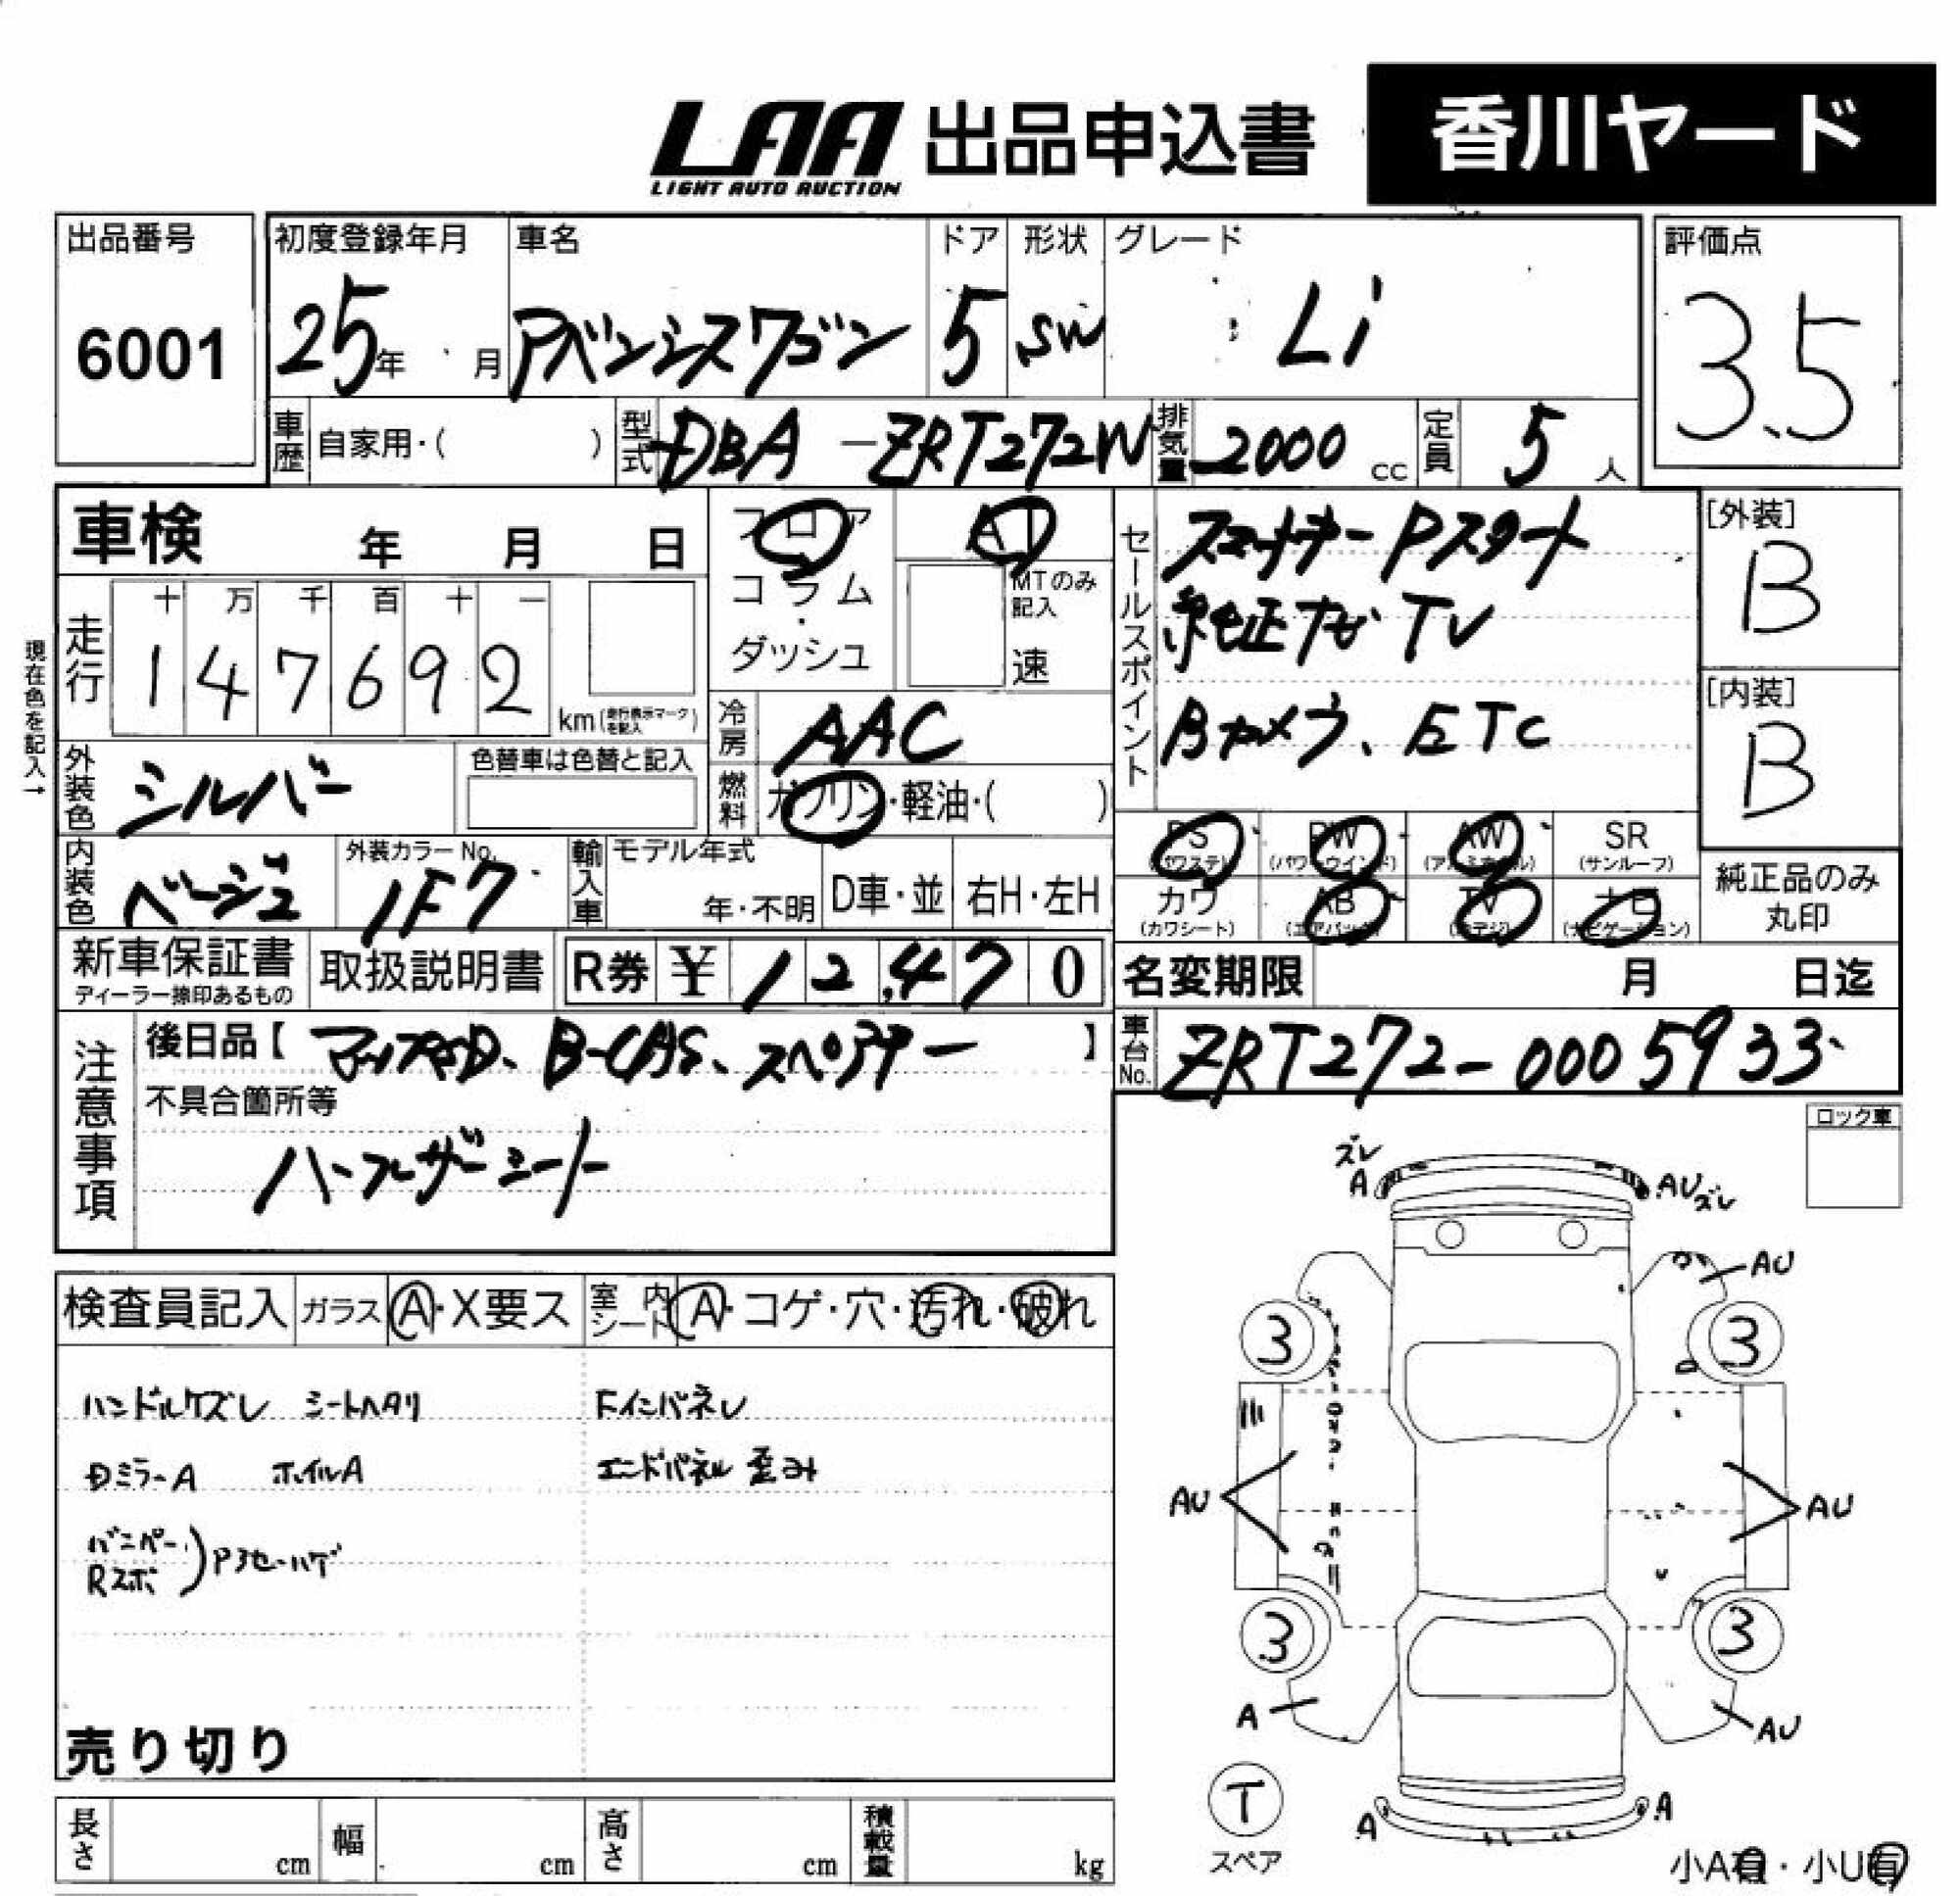 LAA 出品申込書 香川ヤード
LIGHT AUTO AUCTION
出品番号 初度登録年月 車名 ドア 形状 グレード 評価点
6001 25年 月 アベンシスワゴン 5 SW Li 3.5
車歴 自家用・( ) 型式 DBA-ZRT272W 排気量 2000cc 定員 5人
車検 年 月 日
フロア
コラム
ダッシュ
AT
MTのみ記入
速
走行 十 万 千 百 十 一
1 4 7 6 9 2
km (走行表示マークを記入)
現在色を記入→
冷房 AAC
外装色 シルバー 色替車は色替と記入
燃料 ガソリン・軽油・( )
内装色 ベージュ 外装カラーNo. 1F7
輸入車 モデル年式 年・不明 D車・並 右H・左H
セールスポイント
スマートキー Pスタート
純正ナビ TV
Bカメラ、ETC
[外装]
B
[内装]
B
PS PW AW SR
(パワステ) (パワーウインド) (アルミホイル) (サンルーフ)
カワ AB TV ナビ
(カワシート) (エアバッグ) (地デジ) (ナビゲーション)
純正品のみ
丸印
新車保証書
ディーラー捺印あるもの
取扱説明書 R券 ¥ 12,470
名変期限 月 日迄
注意事項
後日品【 マップSD、B-CAS、スペアキー 】
不具合箇所等
ハーフレザーシート
車台No. ZRT272-0005933
ロック車
検査員記入 ガラス A・X要ス 室内シート A・コゲ・穴・汚れ・破れ
ハンドルケズレ シートヘタリ Fインパネレ
Dミラー A ホイル A エンドパネル 歪み
バンパー
Rスポ
売り切り
長さ cm 幅 cm 高さ cm 積載量 kg
ズレ
A AU ズレ
AU
3 3
AU AU
3 3
A AU
T
スペア
A A
小A有・小U有